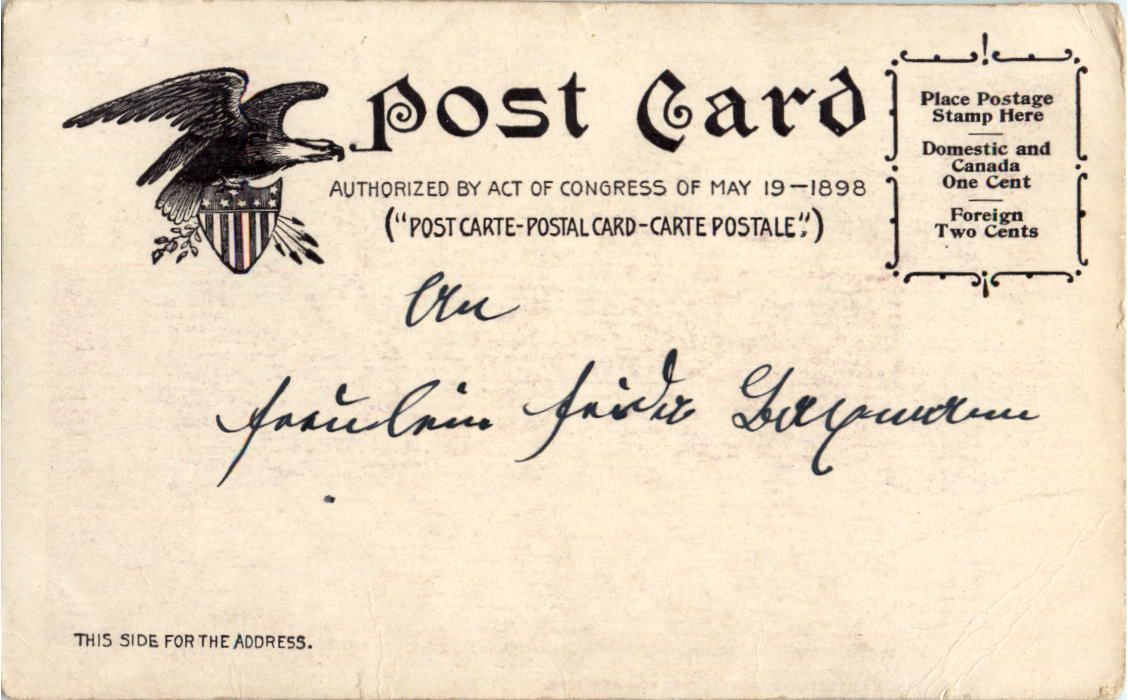 Post Card
AUTHORIZED BY ACT OF CONGRESS OF MAY 19-1898
("POST CARTE-POSTAL CARD-CARTE POSTALE".)
Place Postage
Stamp Here
Domestic and
Canada
One Cent
Foreign
Two Cents
An
Fräulein Frieda
THIS SIDE FOR THE ADDRESS.